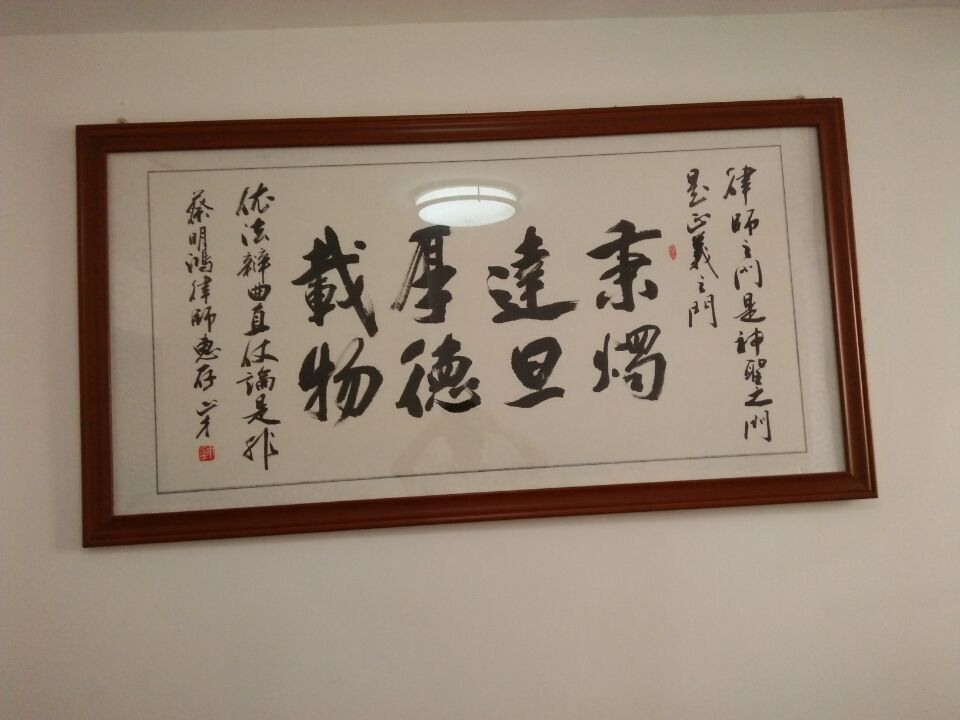 律师之门是神聖之门
是正義之門
秉燭
達旦
厚德
載物
依法辯曲直仗論是非
蔡明鴻律師惠存